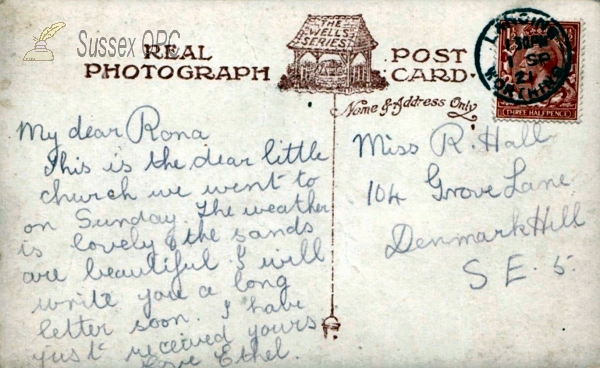 Sussex OPC
REAL PHOTOGRAPH
THE WELLS SERIES
POST CARD
Name & Address Only
LANCING
WORTHING
SP
21
THREE HALFPENCE
My dear Rona
This is the dear little
church we went to
on Sunday. The weather
is lovely & the sands
are beautiful. I will
write you a long
letter soon. I have
just received yours.
Love Ethel.
Miss R. Hall
104 Grove Lane
Denmark Hill
S E. 5.